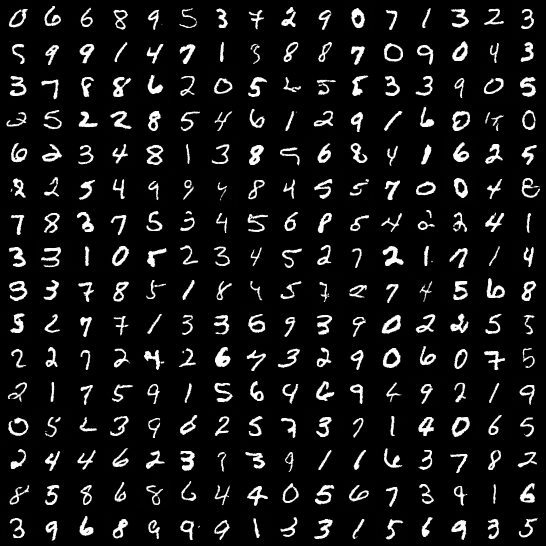 0 6 6 8 9 5 3 7 2 9 0 7 1 3 2 3
5 9 9 1 4 7 1 3 8 8 7 0 9 0 4 3
3 7 8 8 6 2 0 5 2 5 5 3 3 9 0 5
2 5 2 2 8 5 4 6 1 2 9 1 6 0 0
6 2 3 4 8 1 3 8 5 6 8 4 1 6 2 5
2 2 5 4 9 9 4 8 4 5 5 7 0 0 4 8
7 8 3 7 5 3 4 5 6 8 5 4 2 2 4 1
3 3 1 0 5 2 3 4 5 2 7 2 1 7 1 4
3 3 7 8 5 1 8 4 5 7 2 7 4 5 6 8
5 2 7 7 1 3 3 6 9 3 9 0 2 2 5 5
2 2 7 2 4 2 6 7 3 2 9 0 6 0 7 5
2 1 7 5 9 1 5 6 4 6 9 4 9 2 1 9
0 5 2 3 9 6 2 5 7 3 7 1 4 0 6 5
2 4 4 6 2 3 9 3 9 1 1 6 3 7 8 2
8 5 8 6 8 6 4 4 0 5 6 7 3 9 1 6
3 9 6 8 9 9 9 1 3 3 1 5 6 9 3 5